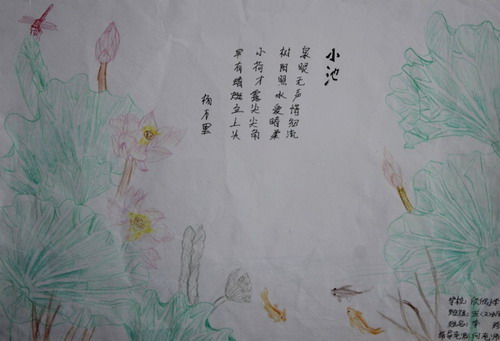 小池
泉眼无声惜细流
树阴照水爱晴柔
小荷才露尖尖角
早有蜻蜓立上头
杨万里
学校:
班级:
姓名: 李
指导老师: